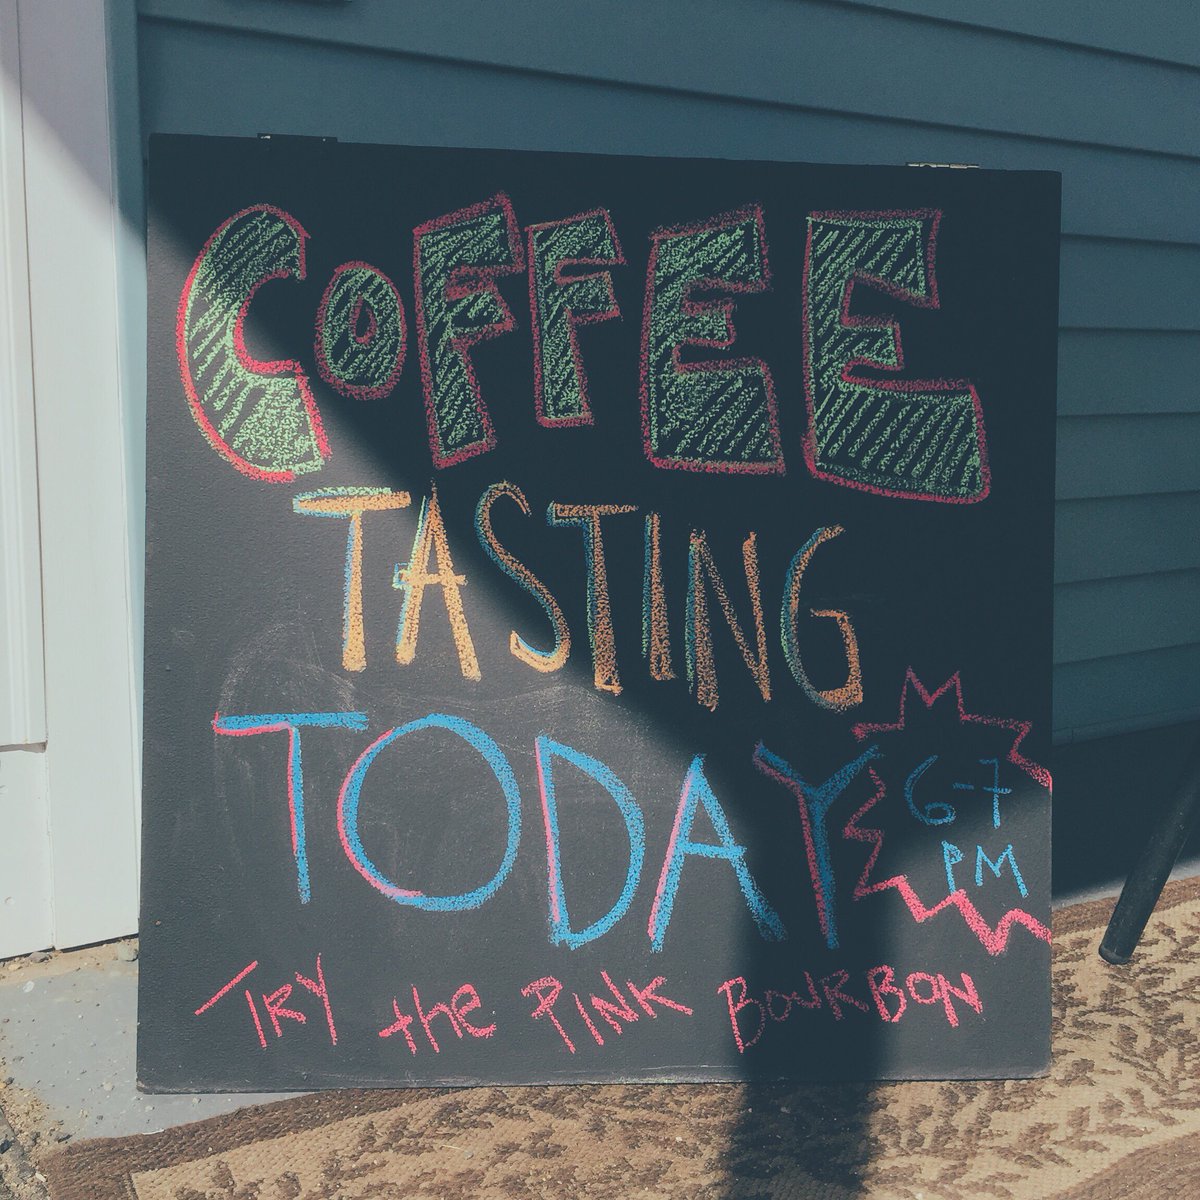 COFFEE
TASTING
TODAY
6-7
PM
TRY the PINK BOURBON